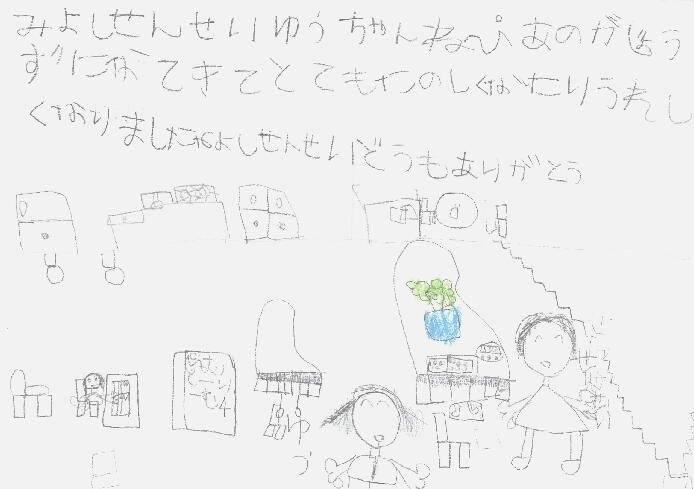 みよしせんせいゆうちゃんねぴあのがじょう
ずになてきてとてもたのしくなたりうれし
くなりましたみよしせんせいどうもありがとう
ゆう